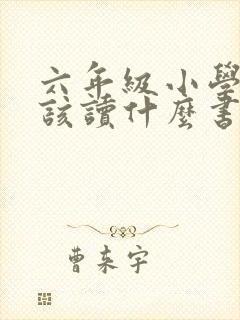 六年級小學
該讀什麼書
曹來宇